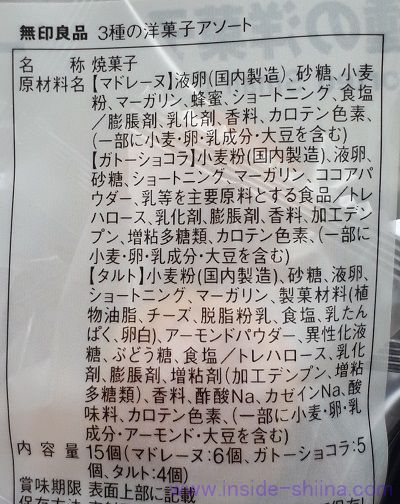 無印良品 3種の洋菓子アソート
名称 焼菓子
原材料名 【マドレーヌ】液卵(国内製造)、砂糖、小麦
粉、マーガリン、蜂蜜、ショートニング、食塩
／膨脹剤、乳化剤、香料、カロテン色素、
(一部に小麦・卵・乳成分・大豆を含む)
【ガトーショコラ】小麦粉(国内製造)、液卵、
砂糖、ショートニング、マーガリン、ココアパ
ウダー、乳等を主要原料とする食品／トレ
ハロース、乳化剤、膨脹剤、香料、加工デン
プン、増粘多糖類、カロテン色素、(一部に
小麦・卵・乳成分・大豆を含む)
【タルト】小麦粉(国内製造)、砂糖、液卵、
ショートニング、マーガリン、製菓材料(植
物油脂、チーズ、脱脂粉乳、食塩、乳たん
ぱく、卵白)、アーモンドパウダー、異性化液
糖、ぶどう糖、食塩／トレハロース、乳化
剤、膨脹剤、増粘剤(加工デンプン、増粘
多糖類)、香料、酢酸Na、カゼインNa、酸
味料、カロテン色素、(一部に小麦・卵・乳
成分・アーモンド・大豆を含む)
内容量 15個(マドレーヌ:6個、ガトーショコラ:5
個、タルト:4個)
賞味期限 表面上部に記載
www.inside-shiina.com